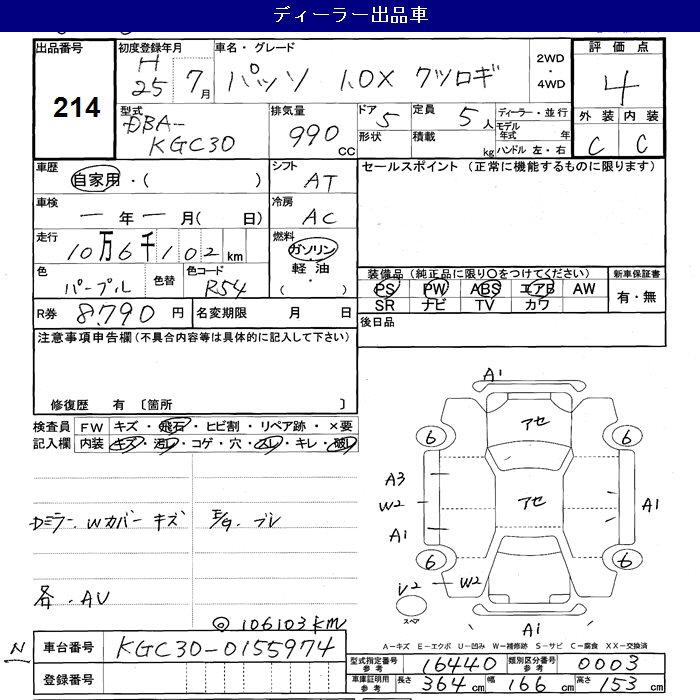 ディーラー出品車
出品番号
214
初度登録年月
H
25 7月
車名・グレード
パッソ 1.0X クツロギ
2WD
・
4WD
評価点
4
外装 内装
C C
型式
DBA-
KGC30
排気量
990
CC
ドア
5
形状
定員
5人
積載
kg
ディーラー・並行
モデル
年式 年
ハンドル 左・右
車歴
自家用・( )
シフト
AT
セールスポイント (正常に機能するものに限ります)
車検
ー年ー月( 日)
冷房
AC
走行
10万6千102km
燃料
ガソリン
軽油
( )
色
パープル
色替
色コード
R54
装備品 (純正品に限り〇をつけてください)
PS PW ABS エアB AW
SR ナビ TV カワ
新車保証書
有・無
R券
8790円
名変期限 月 日
後日品
注意事項申告欄(不具合内容等は具体的に記入して下さい)
修復歴 有 〔箇所 〕
検査員
記入欄
FW キズ・飛石・ヒビ割・リペア跡・×要
内装 キズ・汚レ・コゲ・穴・スレ・キレ・破レ
Dミラー.Wカバー キズ
E/g.ブレ
各.AV
◎106103km
A1
アセ
6 6
A3
W2
A1
アセ
A1
6 6
W2
W2
スペア
A1
A-キズ E-エクボ U-凹み W-補修跡 S-サビ C-腐食 XX-交換済
N
車台番号
KGC30-0155974
登録番号
型式指定番号
参考
16440
類別区分番号
参考
0003
車庫証明用
参考
長さ 364cm 幅 166cm 高さ 153cm